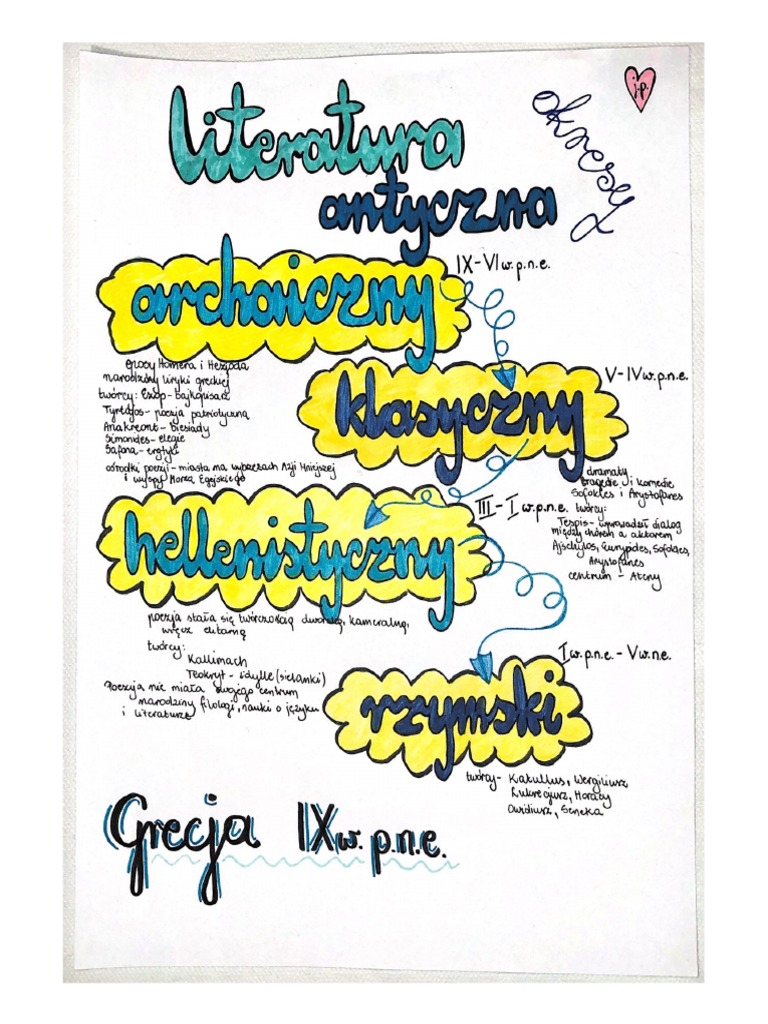 j.p.
literatura
antyczna
okresy
archaiczny
IX-VI w. p.n.e.
eposy Homera i Hezjoda
narodziny liryki greckiej
twórcy: Ezop- bajkopisarz
Tyrtajos- poezja patriotyczna
Anakreont- biesiady
Simonides- elegie
Safona- erotyki
ośrodki poezji- miasta na wybrzeżach Azji Mniejszej
i wyspy Morza Egejskiego
klasyczny
V-IV w. p.n.e.
dramaty
tragedie i komedie
Sofokles i Arystofanes
twórcy:
Tespis- wprowadził dialog
między chórem a aktorem
Ajschylos, Eurypides, Sofokles,
Arystofanes
centrum - Ateny
hellenistyczny
III-I w. p.n.e.
poezja stała się twórczością dworską, kameralną,
wręcz elitarną
twórcy:
Kallimach
Teokryt- idylle (sielanki)
Poezja nie miała swojego centrum
narodziny filologi, nauki o języku
i literaturze
rzymski
I w. p.n.e. - V w. n.e.
twórcy- Katullus, Wergiliusz
Lukrecjusz, Horacy
Owidiusz, Seneka
Grecja IX w. p.n.e.